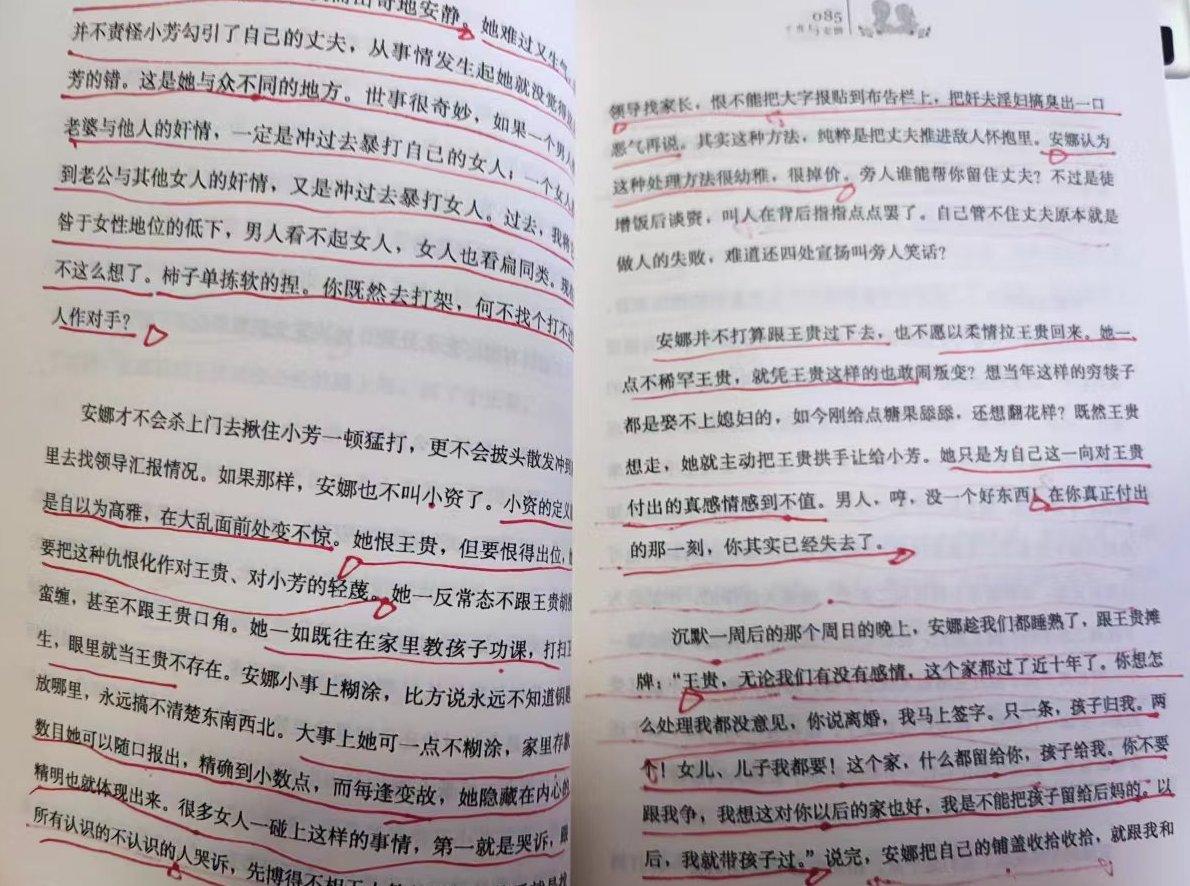 出奇地安静。她难过又生气。
并不责怪小芳勾引了自己的丈夫，从事情发生起她就没觉得
芳的错。这是她与众不同的地方。世事很奇妙，如果一个男人
老婆与他人的奸情，一定是冲过去暴打自己的女人；一个女人
到老公与其他女人的奸情，又是冲过去暴打女人。过去，我将
咎于女性地位的低下，男人看不起女人，女人也看扁同类。现
不这么想了。柿子单拣软的捏。你既然去打架，何不找个打不过
人作对手？
安娜才不会杀上门去揪住小芳一顿猛打，更不会披头散发冲到
里去找领导汇报情况。如果那样，安娜也不叫小资了。小资的定义
是自以为高雅，在大乱面前处变不惊。她恨王贵，但要恨得出位，
要把这种仇恨化作对王贵、对小芳的轻蔑。她一反常态不跟王贵胡
蛮缠，甚至不跟王贵口角。她一如既往在家里教孩子功课，打扫卫
生，眼里就当王贵不存在。安娜小事上糊涂，比方说永远不知道钥匙
放哪里，永远搞不清楚东南西北。大事上她可一点不糊涂，家里存款
数目她可以随口报出，精确到小数点，而每逢变故，她隐藏在内心的
精明也就体现出来。很多女人一碰上这样的事情，第一就是哭诉，跟
所有认识的不认识的人哭诉，先博得不相干人
085
领导找家长，恨不能把大字报贴到布告栏上，把奸夫淫妇搞臭出一口
恶气再说。其实这种方法，纯粹是把丈夫推进敌人怀抱里。安娜认为
这种处理方法很幼稚，很掉价。旁人谁能帮你留住丈夫？不过是徒
增饭后谈资，叫人在背后指指点点罢了。自己管不住丈夫原本就是
做人的失败，难道还四处宣扬叫旁人笑话？
安娜并不打算跟王贵过下去，也不愿以柔情拉王贵回来。她一
点不稀罕王贵，就凭王贵这样的也敢闹叛变？想当年这样的穷犊子
都是娶不上媳妇的，如今刚给点糖果舔舔，还想翻花样？既然王贵
想走，她就主动把王贵拱手让给小芳。她只是为自己这一向对王贵
付出的真感情感到不值。男人，哼，没一个好东西！在你真正付出
的那一刻，你其实已经失去了。
沉默一周后的那个周日的晚上，安娜趁我们都睡熟了，跟王贵摊
牌：“王贵，无论我们有没有感情，这个家都过了近十年了。你想怎
么处理我都没意见，你说离婚，我马上签字。只一条，孩子归我。两
个！女儿、儿子我都要！这个家，什么都留给你，孩子给我。你不要
跟我争，我想这对你以后的家也好，我是不能把孩子留给后妈的。以
后，我就带孩子过。”说完，安娜把自己的铺盖收拾收拾，就跟我和